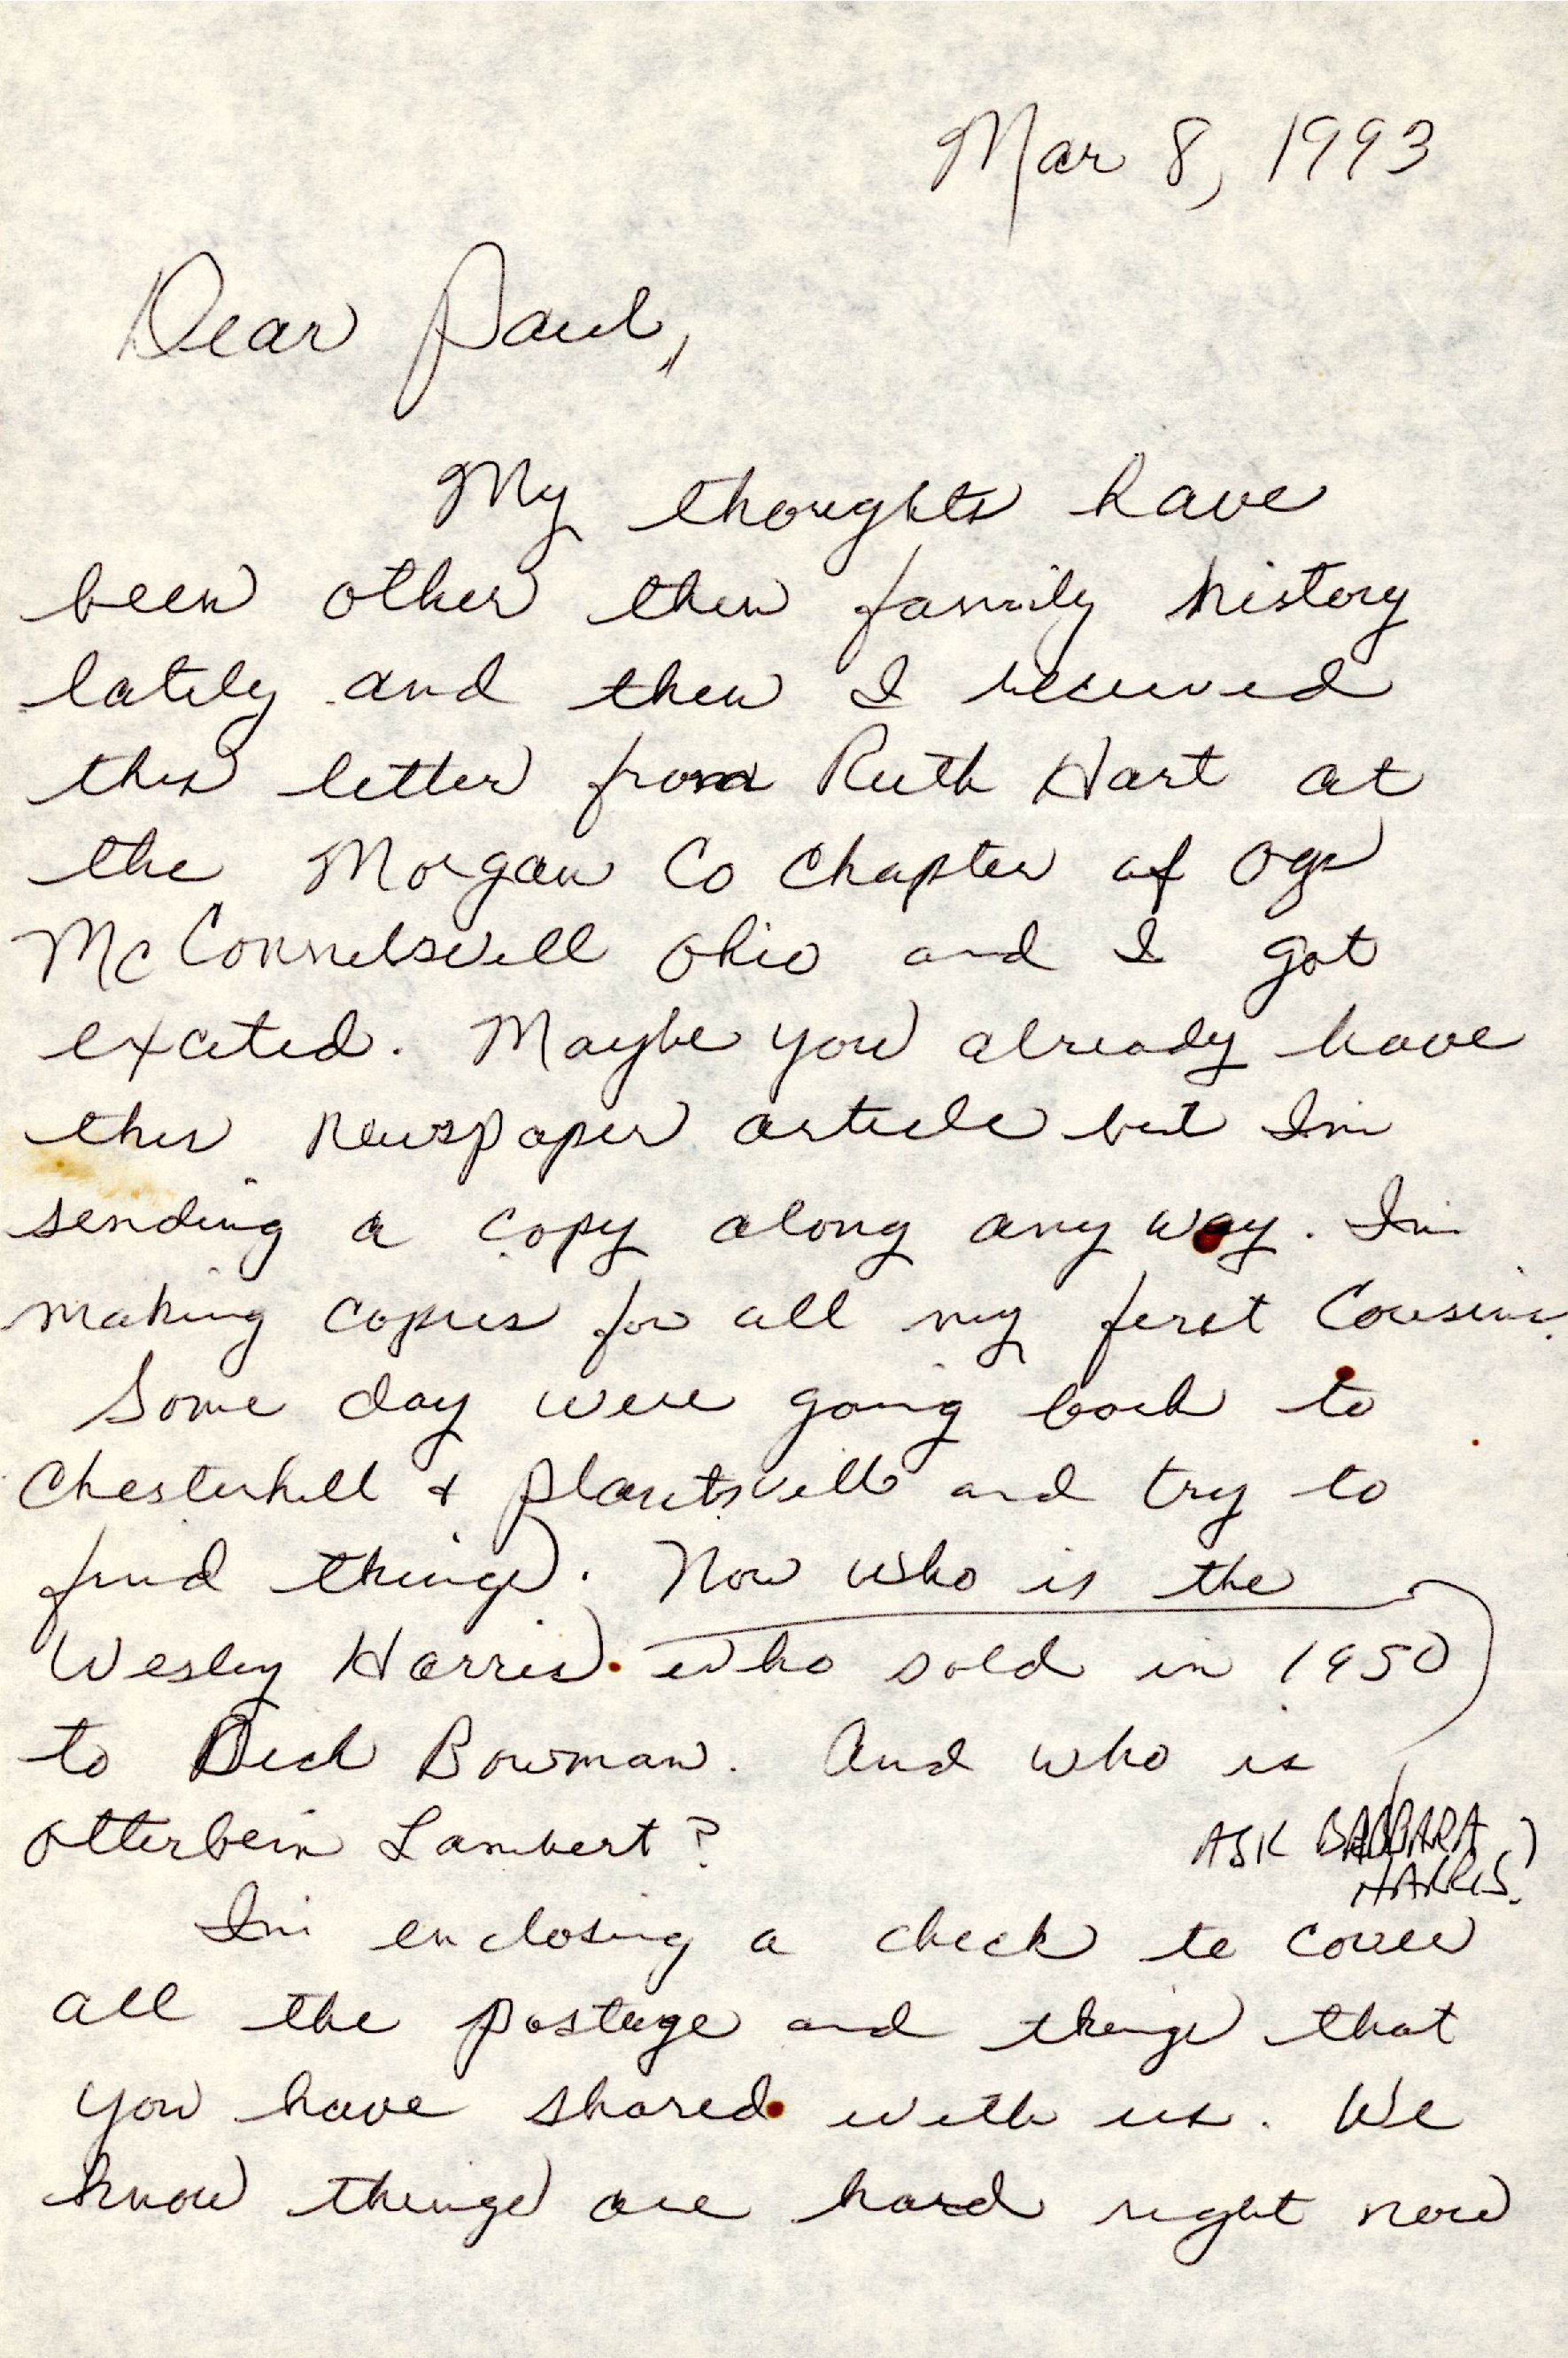 Mar 8, 1993
Dear Paul,
My thoughts have
been other then family history
lately and then I received
this letter from Ruth Hart at
the Morgan Co Chapter of Ogs
McConnelsvill Ohio and I got
excited. Maybe you already have
this newspaper article but I'm
sending a copy along any way. I'm
making copies for all my first Cousins.
Some day were going back to
Chesterhill & Plantsvill and try to
find things. Now who is the
Wesley Harris who sold in 1950
to Dick Bowman. And who is
Otterbein Lambert?
ASK BARBARA
HARRIS.
I'm enclosing a check to cover
all the postage and things that
you have shared with us. We
know things are hard right now